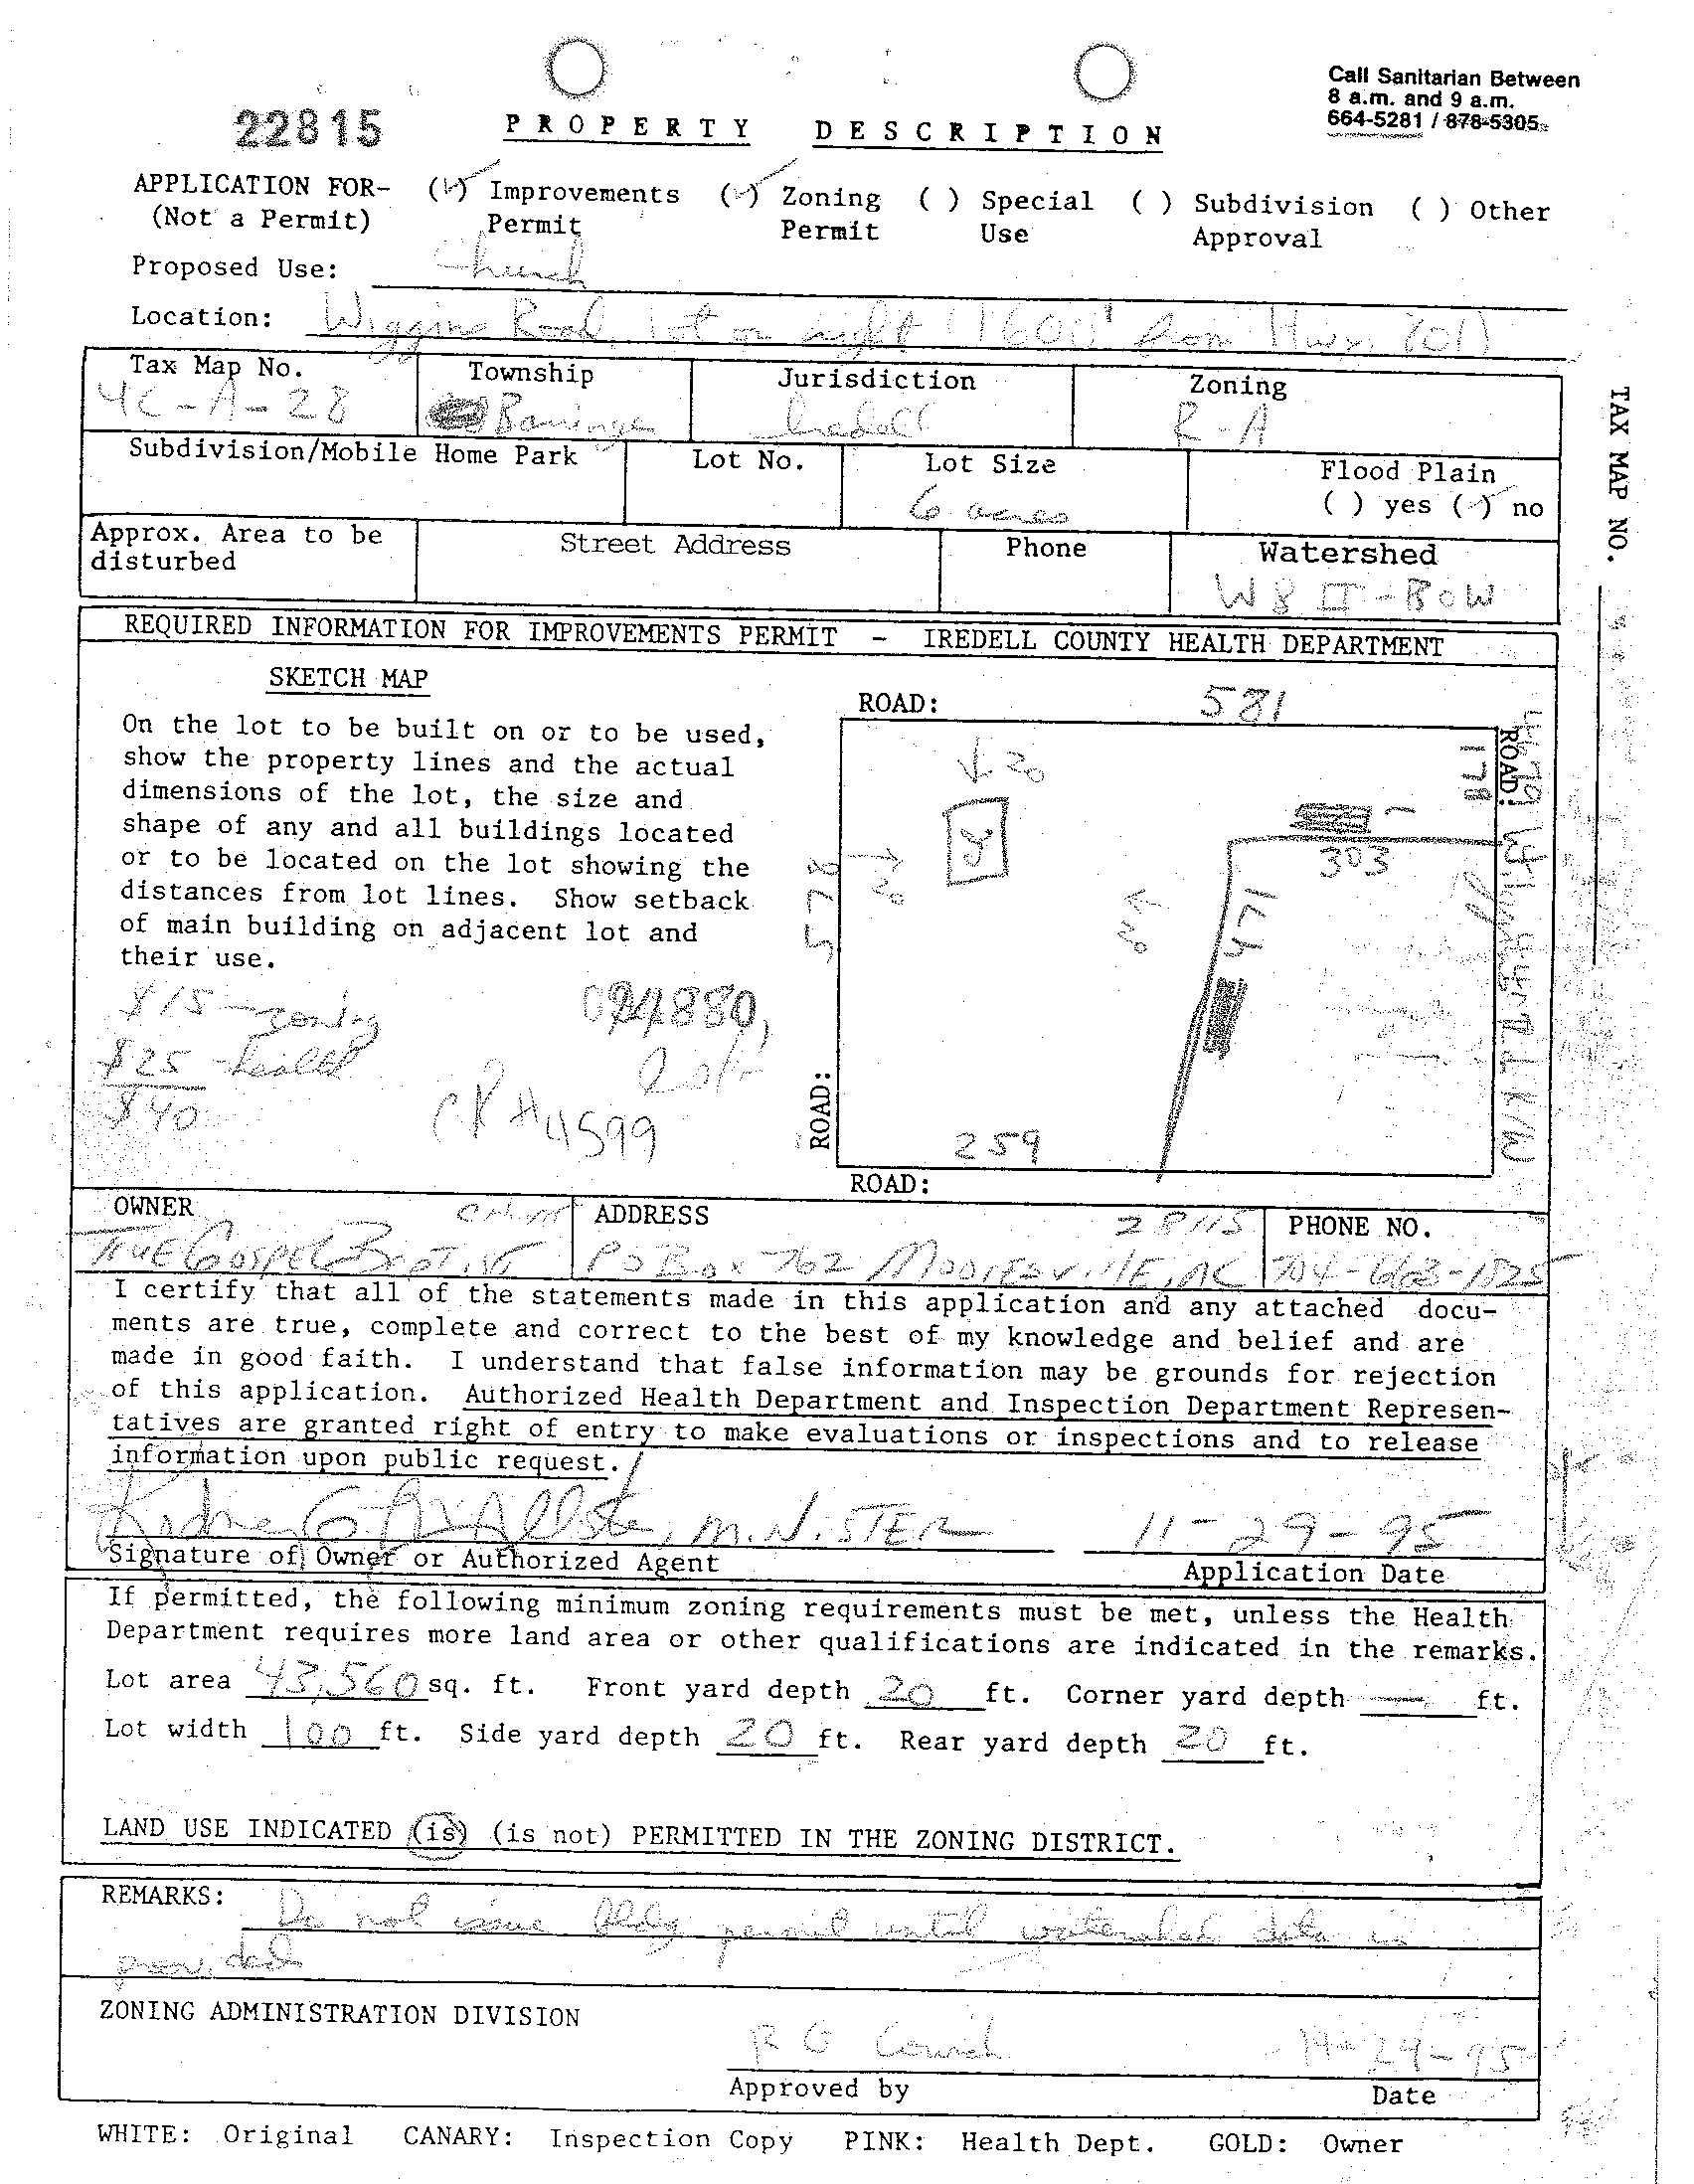 Call Sanitarian Between
8 a.m. and 9 a.m.
664-5281 / 878-5305
22815
PROPERTY DESCRIPTION
APPLICATION FOR- (✓) Improvements (✓) Zoning ( ) Special ( ) Subdivision ( ) Other
(Not a Permit) Permit Permit Use Approval
Proposed Use: Church
Location: Wiggins Road, lot on right (1600' from Hwy. 801)
Tax Map No. Township Jurisdiction Zoning
4C-A-28 Barringer Iredell R-A
Subdivision/Mobile Home Park Lot No. Lot Size Flood Plain
6 acres ( ) yes (✓) no
Approx. Area to be Street Address Phone Watershed
disturbed
WS II-BOW
TAX MAP NO.
REQUIRED INFORMATION FOR IMPROVEMENTS PERMIT - IREDELL COUNTY HEALTH DEPARTMENT
SKETCH MAP
On the lot to be built on or to be used,
show the property lines and the actual
dimensions of the lot, the size and
shape of any and all buildings located
or to be located on the lot showing the
distances from lot lines. Show setback
of main building on adjacent lot and
their use.
$15 - zoning
$25 - health
$40
CK #4599
ROAD: 581
20
178
ROAD:
303
578
20
20
471
ROAD:
259
ROAD:
OWNER ADDRESS 28115 PHONE NO.
TRUE GOSPEL BAPTIST PO Box 762 MOORESVILLE, NC 704-663-1525
I certify that all of the statements made in this application and any attached docu-
ments are true, complete and correct to the best of my knowledge and belief and are
made in good faith. I understand that false information may be grounds for rejection
of this application. Authorized Health Department and Inspection Department Represen-
tatives are granted right of entry to make evaluations or inspections and to release
information upon public request.
MINISTER 11-29-95
Signature of Owner or Authorized Agent Application Date
If permitted, the following minimum zoning requirements must be met, unless the Health
Department requires more land area or other qualifications are indicated in the remarks.
Lot area 43,560 sq. ft. Front yard depth 20 ft. Corner yard depth — ft.
Lot width 100 ft. Side yard depth 20 ft. Rear yard depth 20 ft.
LAND USE INDICATED (is) (is not) PERMITTED IN THE ZONING DISTRICT.
REMARKS: Do not issue bldg permit until watershed data is
provided
ZONING ADMINISTRATION DIVISION
R G 11-29-95
Approved by Date
WHITE: Original CANARY: Inspection Copy PINK: Health Dept. GOLD: Owner